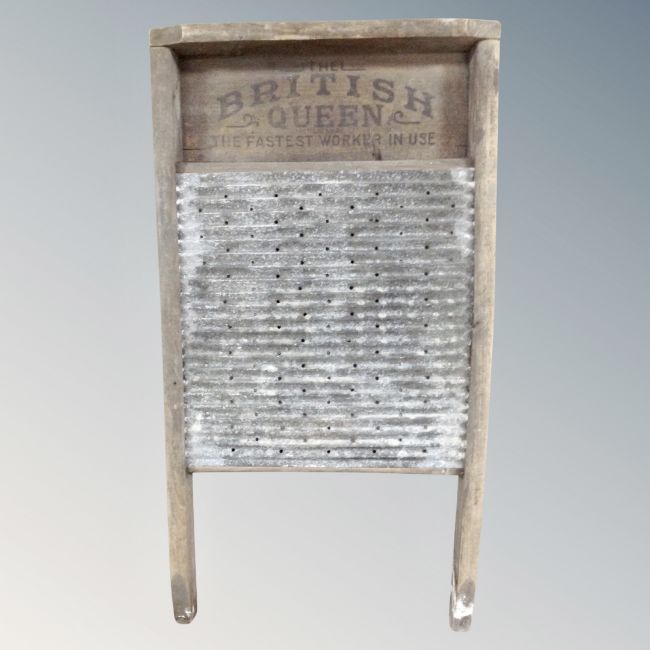 THE
BRITISH
QUEEN
THE FASTEST WORKER IN USE